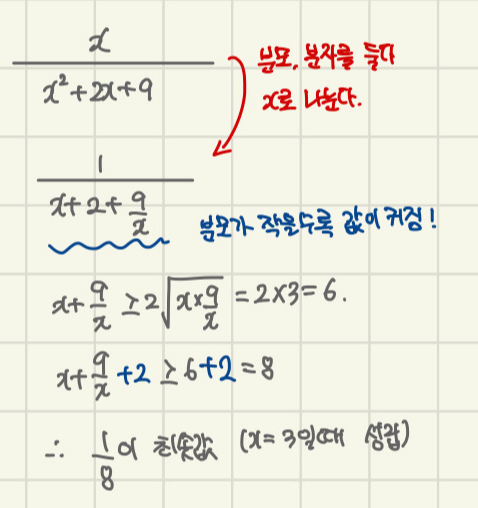 x
x²+2x+9
분모, 분자를 둘다
x로 나눈다.
1
x+2+9/x
분모가 작을수록 값이 커짐!
x+9/x ≥ 2√(x×9/x) = 2×3=6.
x+9/x+2 ≥ 6+2=8
∴ 1/8이 최솟값 (x=3일때 성립)